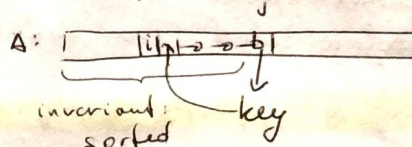 j
A:
i
invariant:
sorted
key